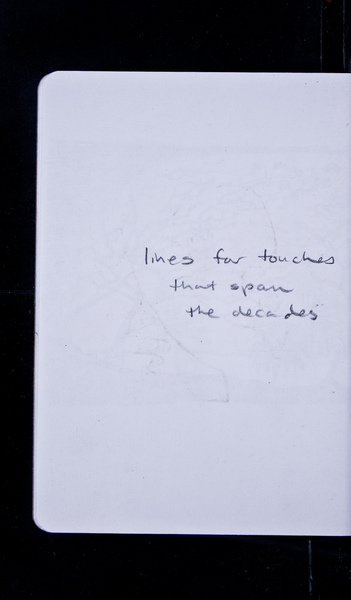 lines for touches
that span
the decades